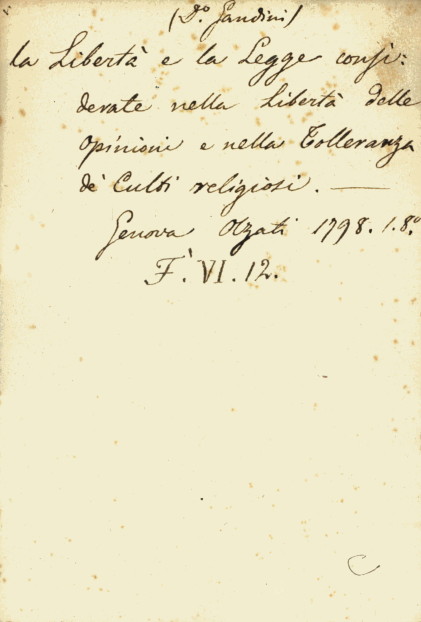 (D.º Gandini)
La Libertà e la Legge consi:
derate nella Libertà delle
Opinioni e nella Tolleranza
de' Culti religiosi. —
Genova Olzati 1798. 1.8.º
F. VI. 12.